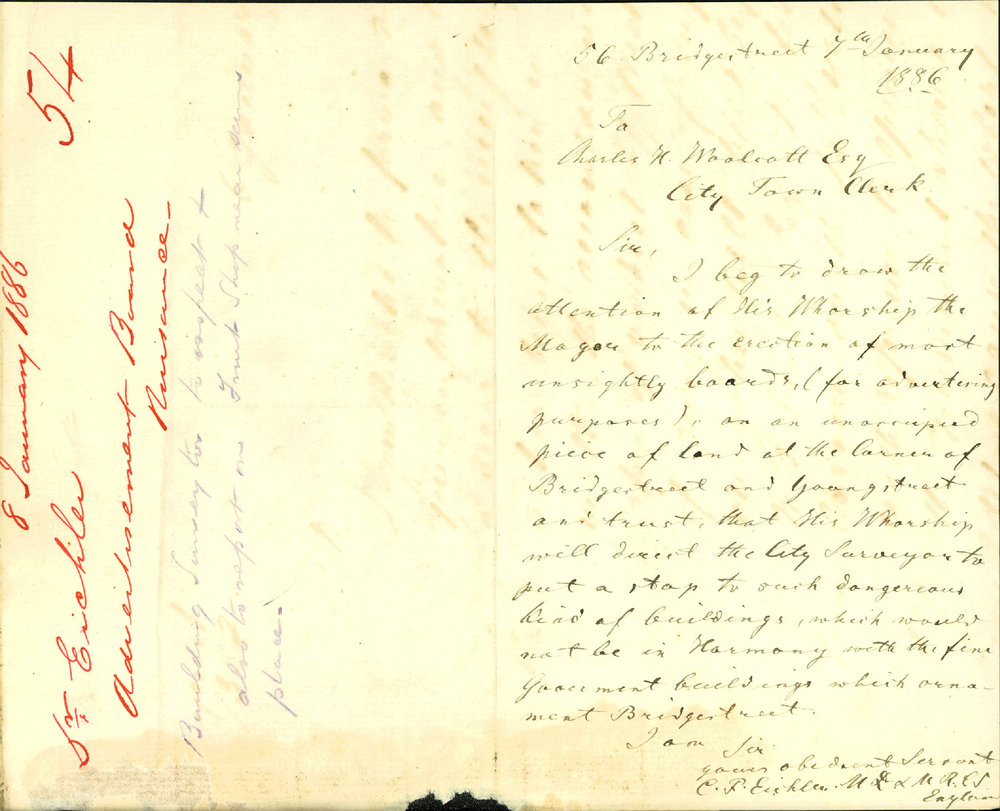 54
8 January 1886
Dr. Eichler
Advertisement Board
Nuisance_
Building Surveyor to inspect &
also to report on Fruit Shop near same
place_
56 Bridgestreet 7th January
1886
To
Charles H. Woolcott Esq
City Town Clerk
Sir,
I beg to draw the
attention of His Whorship the
Mayor to the erection of most
unsightly boards, (for advertising
purposes), on an unoccupied
piece of land at the Corner of
Bridgestreet and Youngstreet
and trust, that His Whorship
will direct the City Surveyor to
put a stop to such dangereous
kind of buildings, which would
not be in Harmony with the fine
Goverment buildings which orna-
ment Bridgestreet.
I am Sir
yours obedient Servant
C. F. Eichler M.D. & M.R.C.S
England